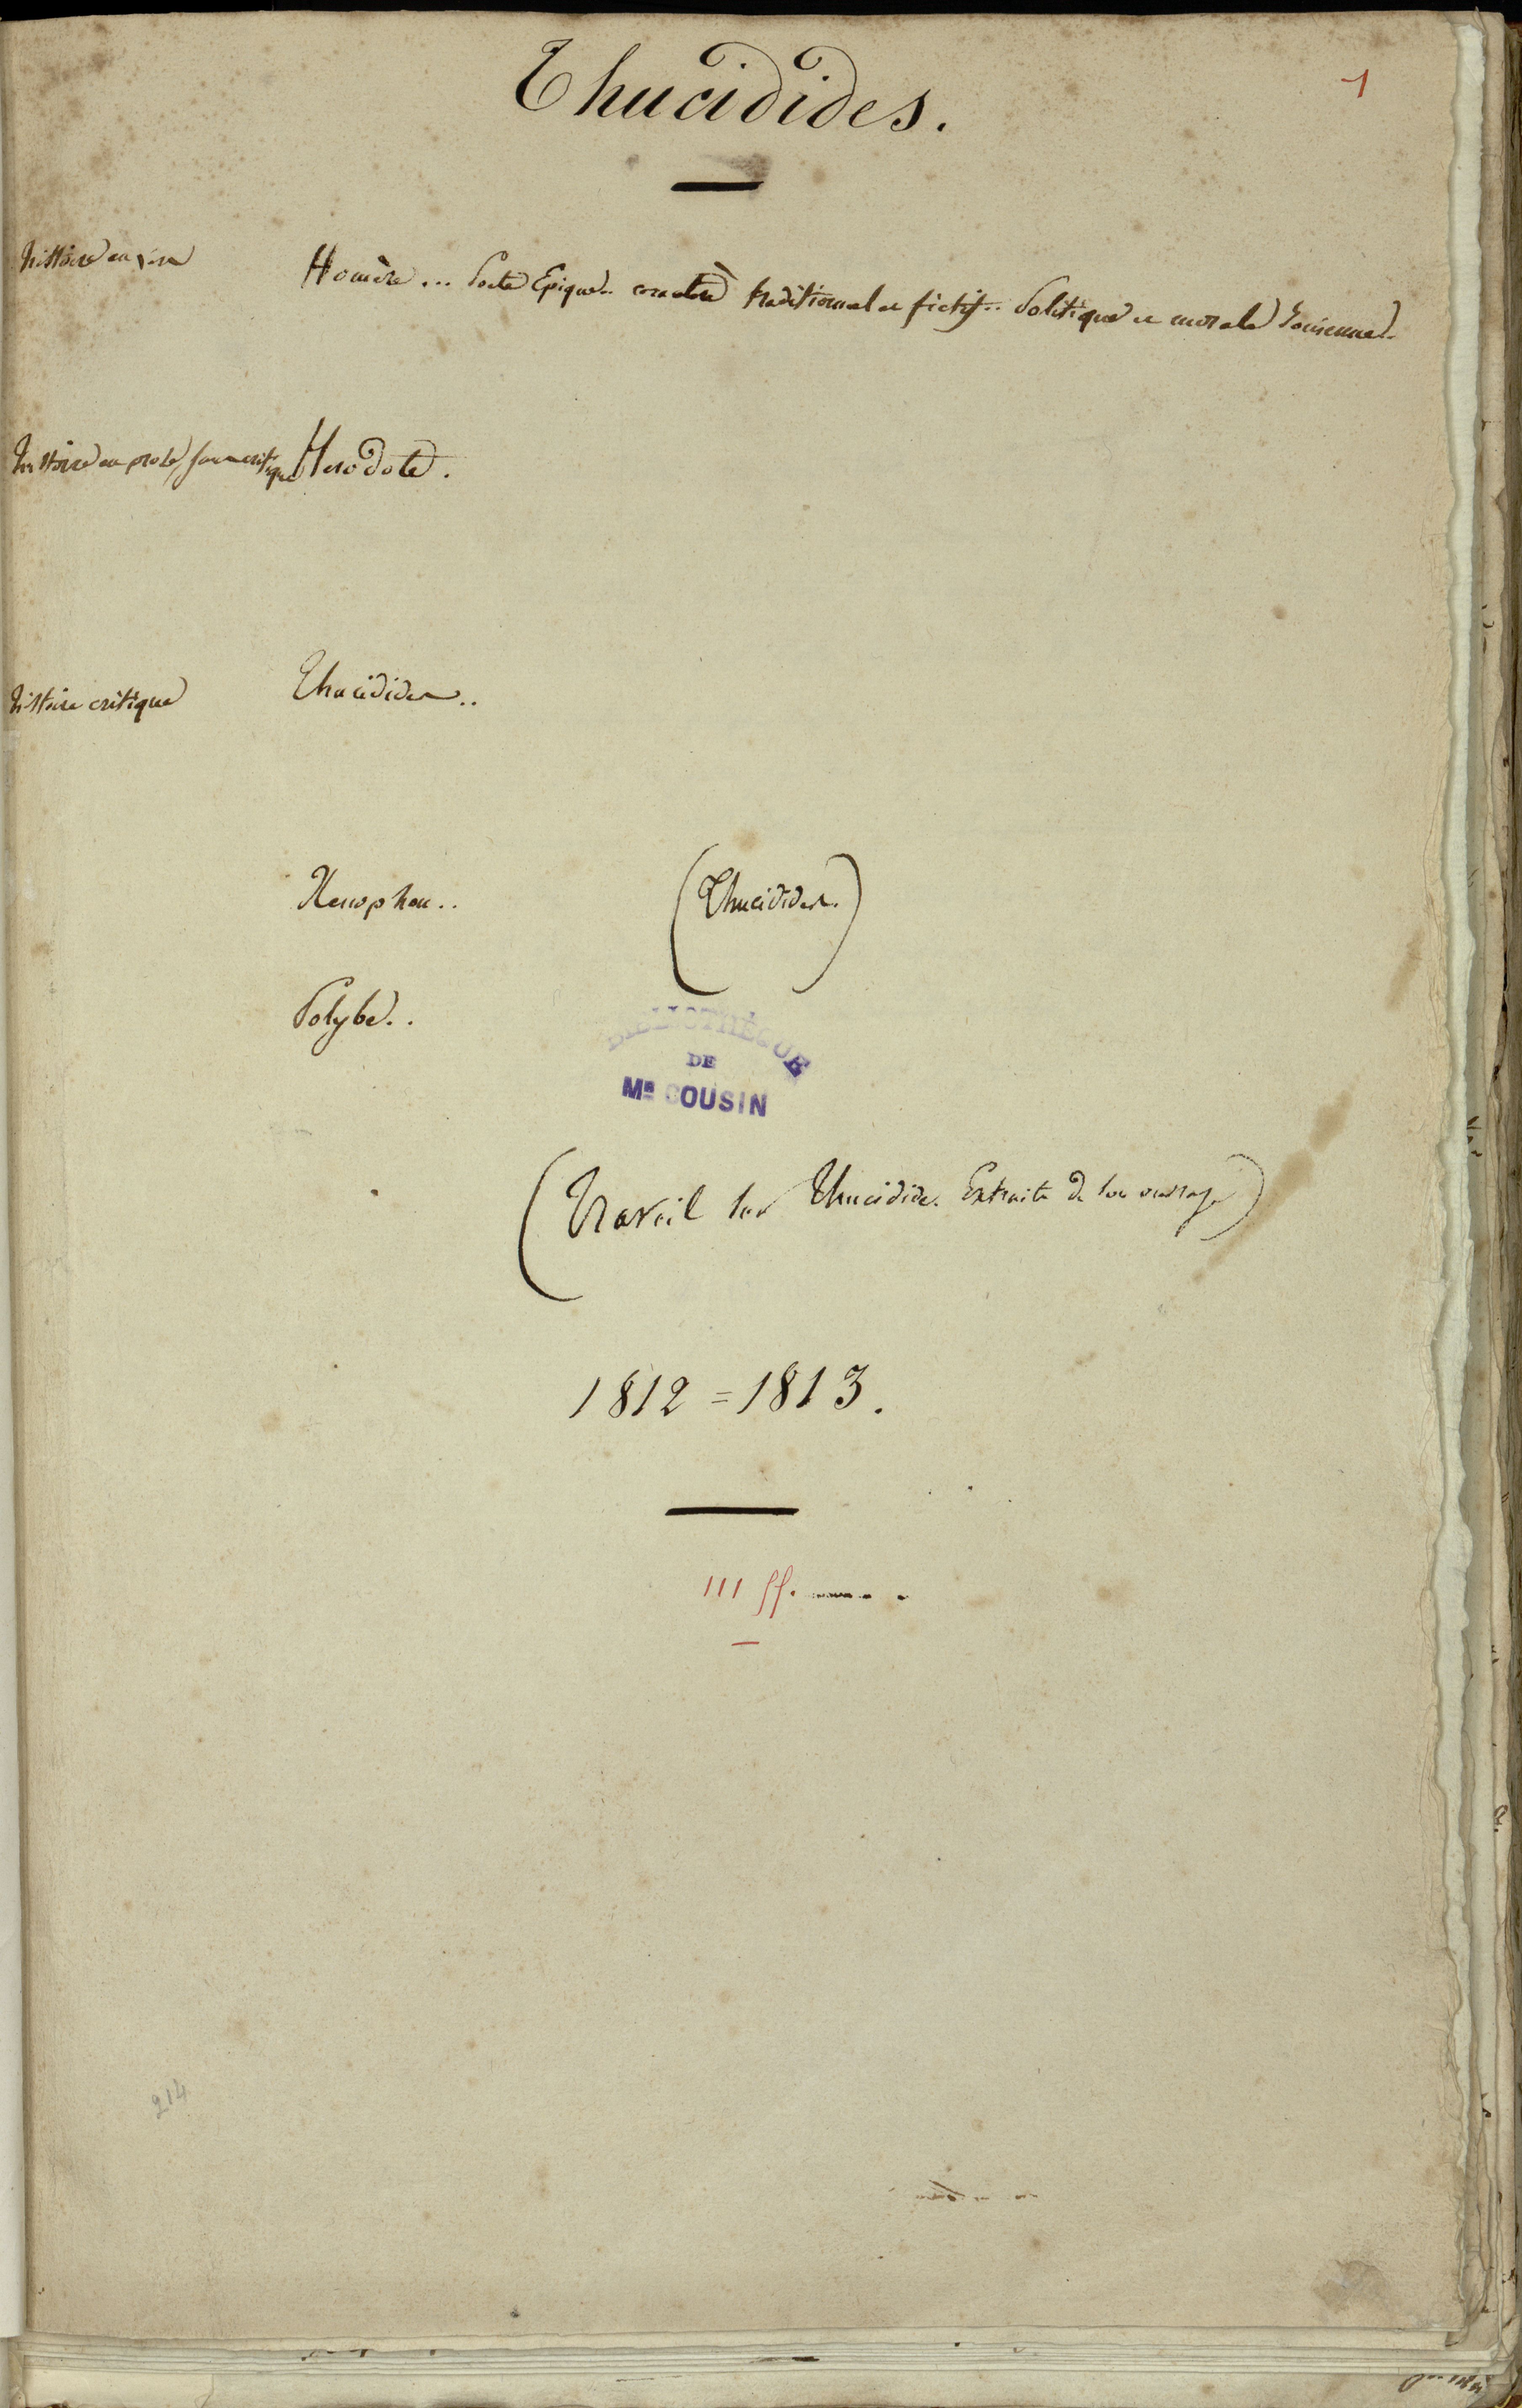 Thucidides.
1
histoire en vers
Homère... Poète Epique.. caractère traditionnel et fictif.. Politique et morale Ionienne..
histoire en prose, sans critique
Herodote.
histoire critique
Thucidides..
Xenophon..
(Thucidides.)
Polybe..
BIBLIOTHÈQUE
DE
MR COUSIN
(Travail sur Thucidide. Extraits de son ouvrage)
1812 = 1813.
111 ff.
214